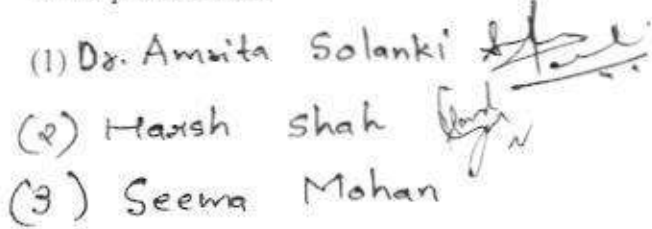 (1) Dr. Amrita Solanki
(2) Harsh Shah
(3) Seema Mohan